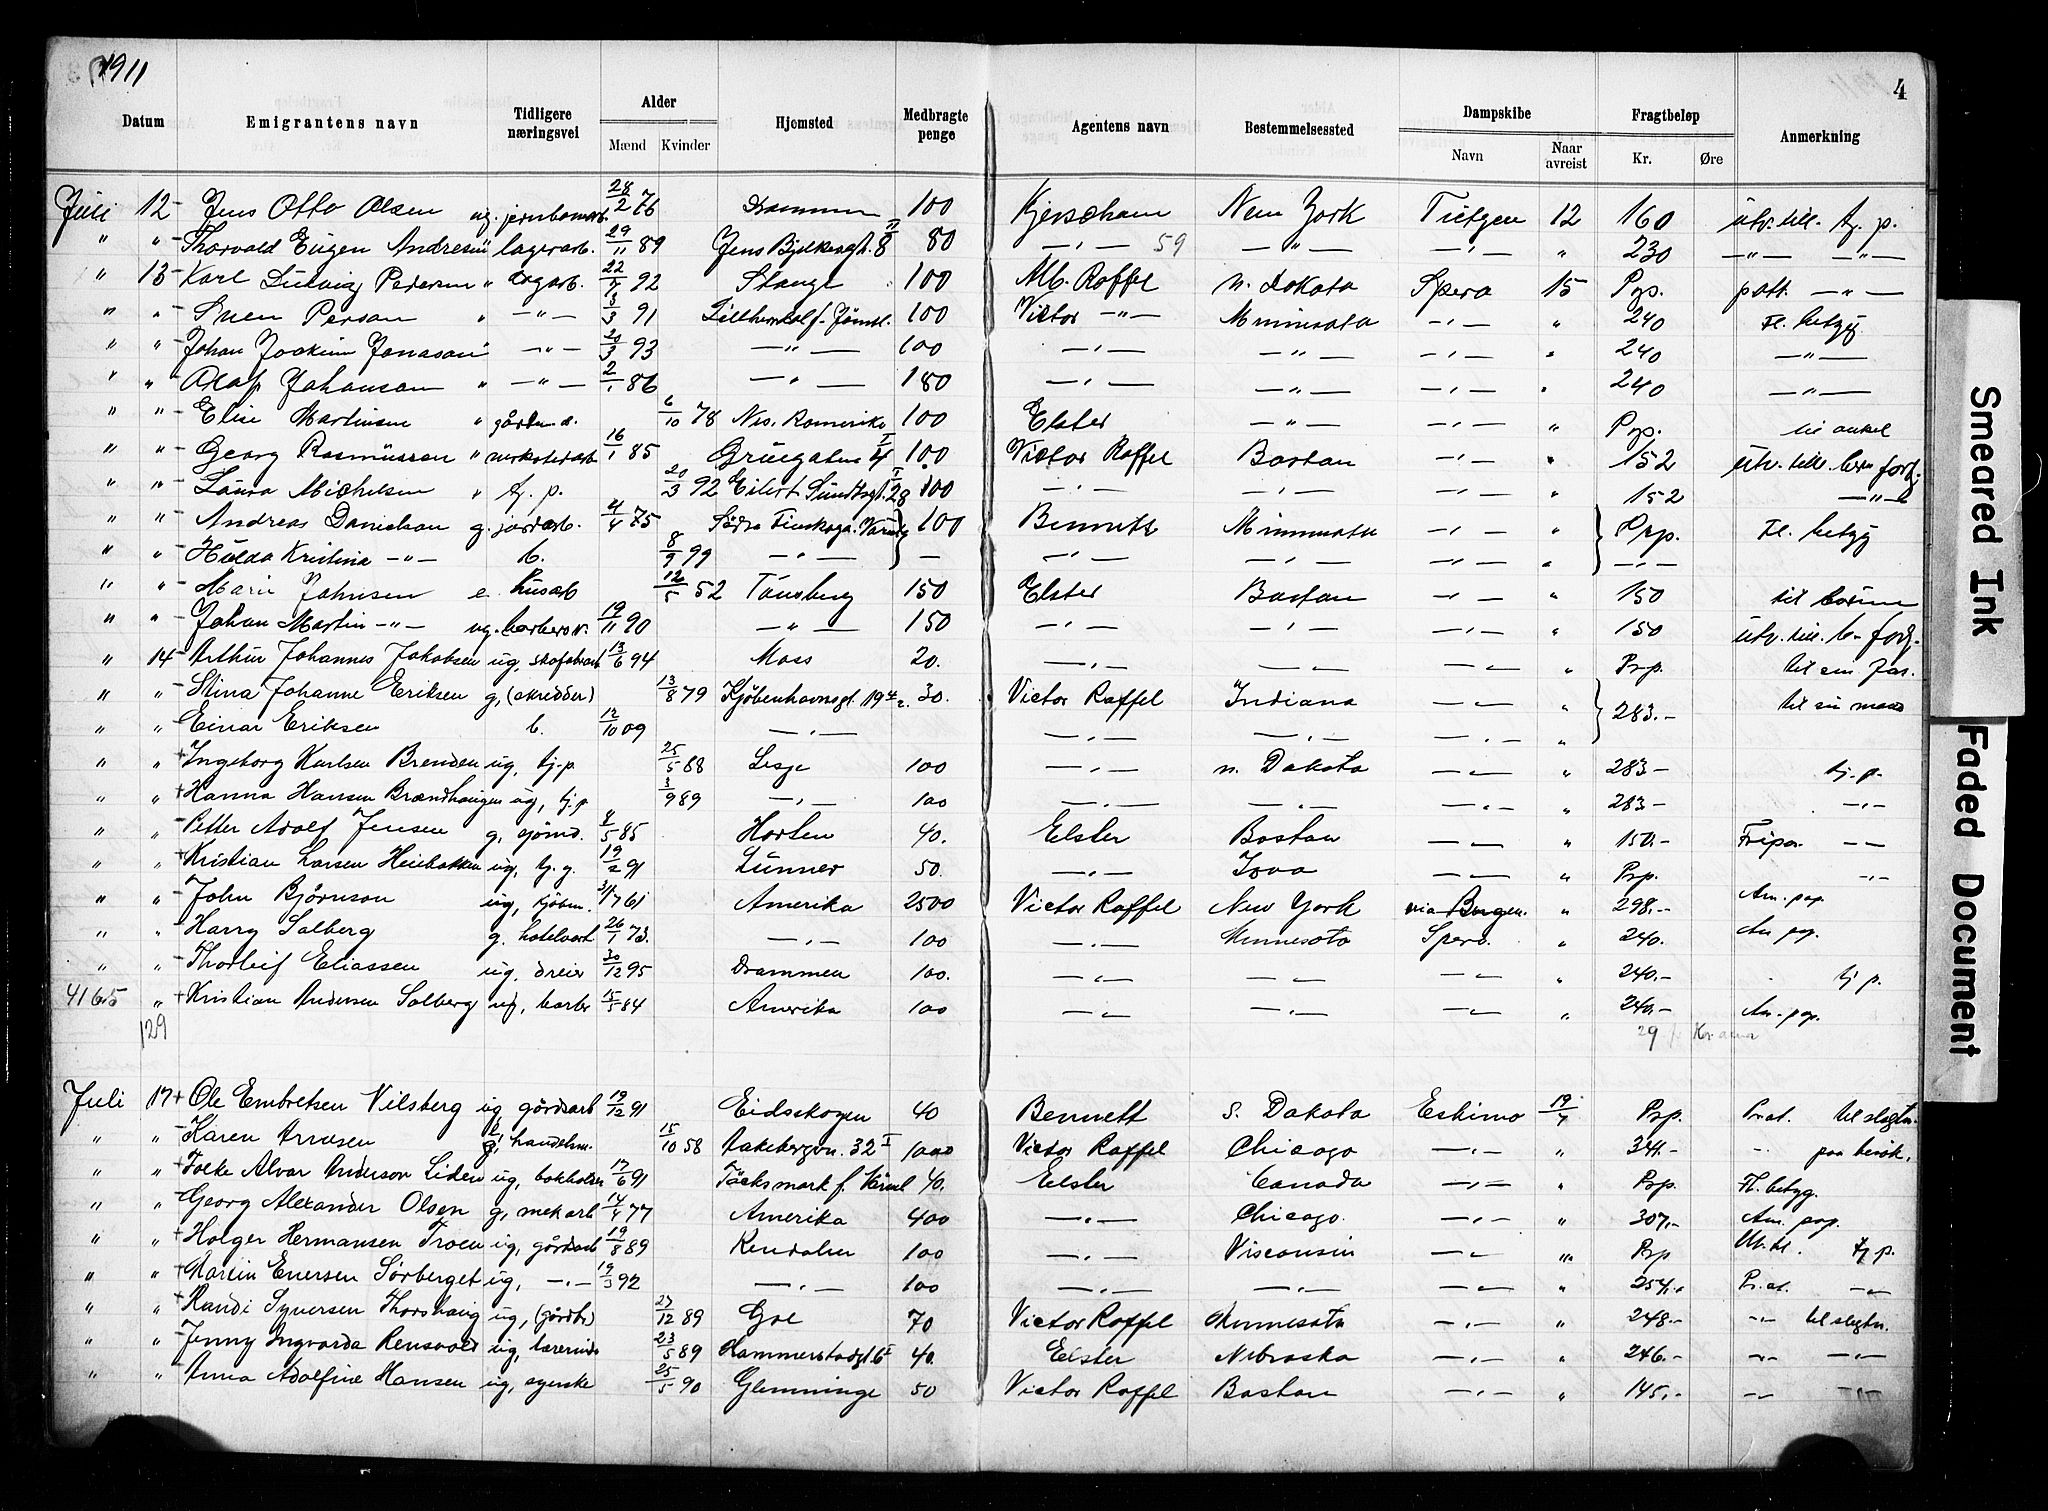 1911
4
Datum Emigrantens navn Tidligere næringsvei Alder Mænd Kvinder Hjemsted Medbragte penge Agentens navn Bestemmelsessted Dampskibe Navn Naar avreist Fragtbeløp Kr. Øre Anmerkning
Juli 12 - Jens Otto Olsen ug. 28/2 76 Drammen 100 Kjerschow New York Tietgen 12 160 utv. till. tj. p.
" " - Thorvald Eugen Andresen " lagerarb. 29/11 89 Jens Bjelkesgt. 8 II 80 —"— 59 —"— —"— " 230 —"— —"—
" 13 - Karl Ludvig Pedersen " dagarb. 22/7 92 Stange 100 Mb. Raffel n. Dakota Spero 15 Prp. patt. —"—
" " - Sven Person " —"— 3/3 91 100 Victor —"— Minnesota —"— " 240 Fl. betyg
" " - Johan Joakim Jonason " —"— 20/3 93 —"— 100 —"— —"— —"— " 240 —"—
" " - Olaf Johanson " —"— 2/1 86 —"— 180 —"— —"— —"— " 240 —"—
" " - Elise Martinsen " 6/10 78 Nes. Romerike 100 Elster —"— —"— " Prp. til onkel
" " - Georg Rasmussen " verkstedarb 16/1 85 Grüegaten 4 I 100 Victor Raffel Boston —"— " 152 utv. till. forb.
" " - Laura Michelsen " tj. p. 20/3 92 Eilert Sundtsgt. 28 I 100 —"— —"— —"— " 152 —"—
" " - Andreas Danielson g. jordarb. 4/4 75 Södra Finskoga. 100 Bennett Minnesota —"— " Prp. Fl. betyg
" " - Hulda Kristina —"— b. 8/9 99 —"— — —"— —"— —"— " —"—
" " - Marie Johnsen e. husarb 12/5 52 Tönsberg 150 Elster Boston —"— " 150 til
" " - Johan Martin —"— ug. 19/11 90 —"— 150 —"— —"— —"— " 150 utv. till. b. forb.
" 14 - Arthur Johannes Jakobsen ug, skofabrarb 13/6 94 Moss 20. —"— —"— —"— " Prp. til sin far.
" " - Stina Johanne Eriksen g, (skrædder) 13/8 79 Kjøbenhavnsgt. 19 30. Victor Raffel Indiana —"— " 283.- til sin mand
" " - Einar Eriksen b. 12/10 09 —"— —"— —"— "
" " + Ingeborg Karlsen Brenden ug, tj.p 25/5 88 Lesje 100 —"— n. Dakota —"— " 283- tj. p.
" " + Hanna Hansen Brændhaugen ug, tj.p 3/9 89 —"— 100 —"— —"— —"— " 283- —"—
" " - Petter Adolf Jensen g, sjømd. 8/5 85 Horten 40. Elster Boston —"— " 150.- Fripas. —"—
" " + Kristian Larsen Heiebakken ug, tj. g. 19/2 91 Lunner 50. —"— Iova —"— " Prp. —"—
" " - John Bjørnson ug, kjøbm. 3/1 761 Amerika 2500 Victor Raffel New York via Bergen. " 298.- Am. pap.
" " - Harry Solberg g. hotelvært 26/1 73. —"— 100 —"— Minnesota Spero. " 240. Am pap.
" " - Thorleif Eliassen ug. dreier 30/12 95 Drammen 100. —"— —"— —"— " 240.- tj p.
4165 " + Kristian Andersen Solberg ug, barber 15/5 84 Amerika 100 —"— —"— —"— " 240.- Am. pap.
129 29
Juli 17 + Ole Embretsen Vilsberg ug, gårdsarb 19/12 91 Eidsskogen 40 Bennett S. Dakota Eskimo 19/7 Prp. Pr.at. til slegtn.
" " - Karen Arnesen e, handelsv. 15/10 58 Aakebergvn. 32 I 1000 Victor Raffel Chicago —"— " 341.- - paa besøk.
" " + Folke Alvar Anderson Liden ug, bokholder 17/6 91 Töcksmark f. Värml 40. Elster Canada —"— " Prp. Fl. betyg.
" " - Georg Alexander Olsen g, mek arb 14/4 77 Amerika 400 —"— Chicago. —"— " 307.- Am. pap.
" " + Holger Hermansen Troen ug, gårdsarb 19/8 89 Rendalen 100 —"— Visconsin —"— " Prp Utv.til. tj p.
" " + Martin Enersen Sörberget ug, —"— 19/3 92 —"— 100 —"— —"— —"— " 254.- Pr.at. —"—
" " + Randi Syversen Thorshaug ug, (gårdbr) 27/12 89 Gol 70 Victor Raffel Minnesota —"— " 248.- —"— til slegtn.
" " - Jenny Ingvarda Rensvold ug, lærerinde 23/5 89 Hammerstadgt 6 I 40. Elster Nebraska —"— " 246.- —"— —"—
" " + Anna Adolfine Hansen ug, syerske 25/5 90 Glemminge 50 Victor Raffel Boston —"— " 145.- —"— —"—
Smeared Ink
Faded Document